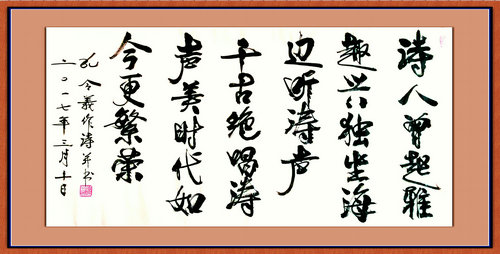 诗人曾起雅
趣兴独坐海
边听涛声
千古绝唱涛
声美时代如
今更繁荣
孔令義作诗并书
二〇一七年三月十日